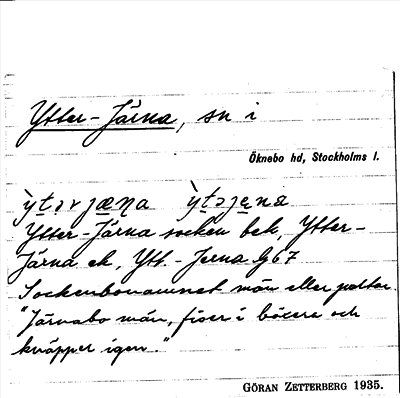 Ytter-Järna, sn i
Öknebo hd, Stockholms l.
Ytter-Järna socken bek, Ytter-
Järna ek, Ytt.-Jerna G67
Sockenbonamnet män eller
"Järnabo män, fiser i böxera och
knäpper igen."
GÖRAN ZETTERBERG 1935.